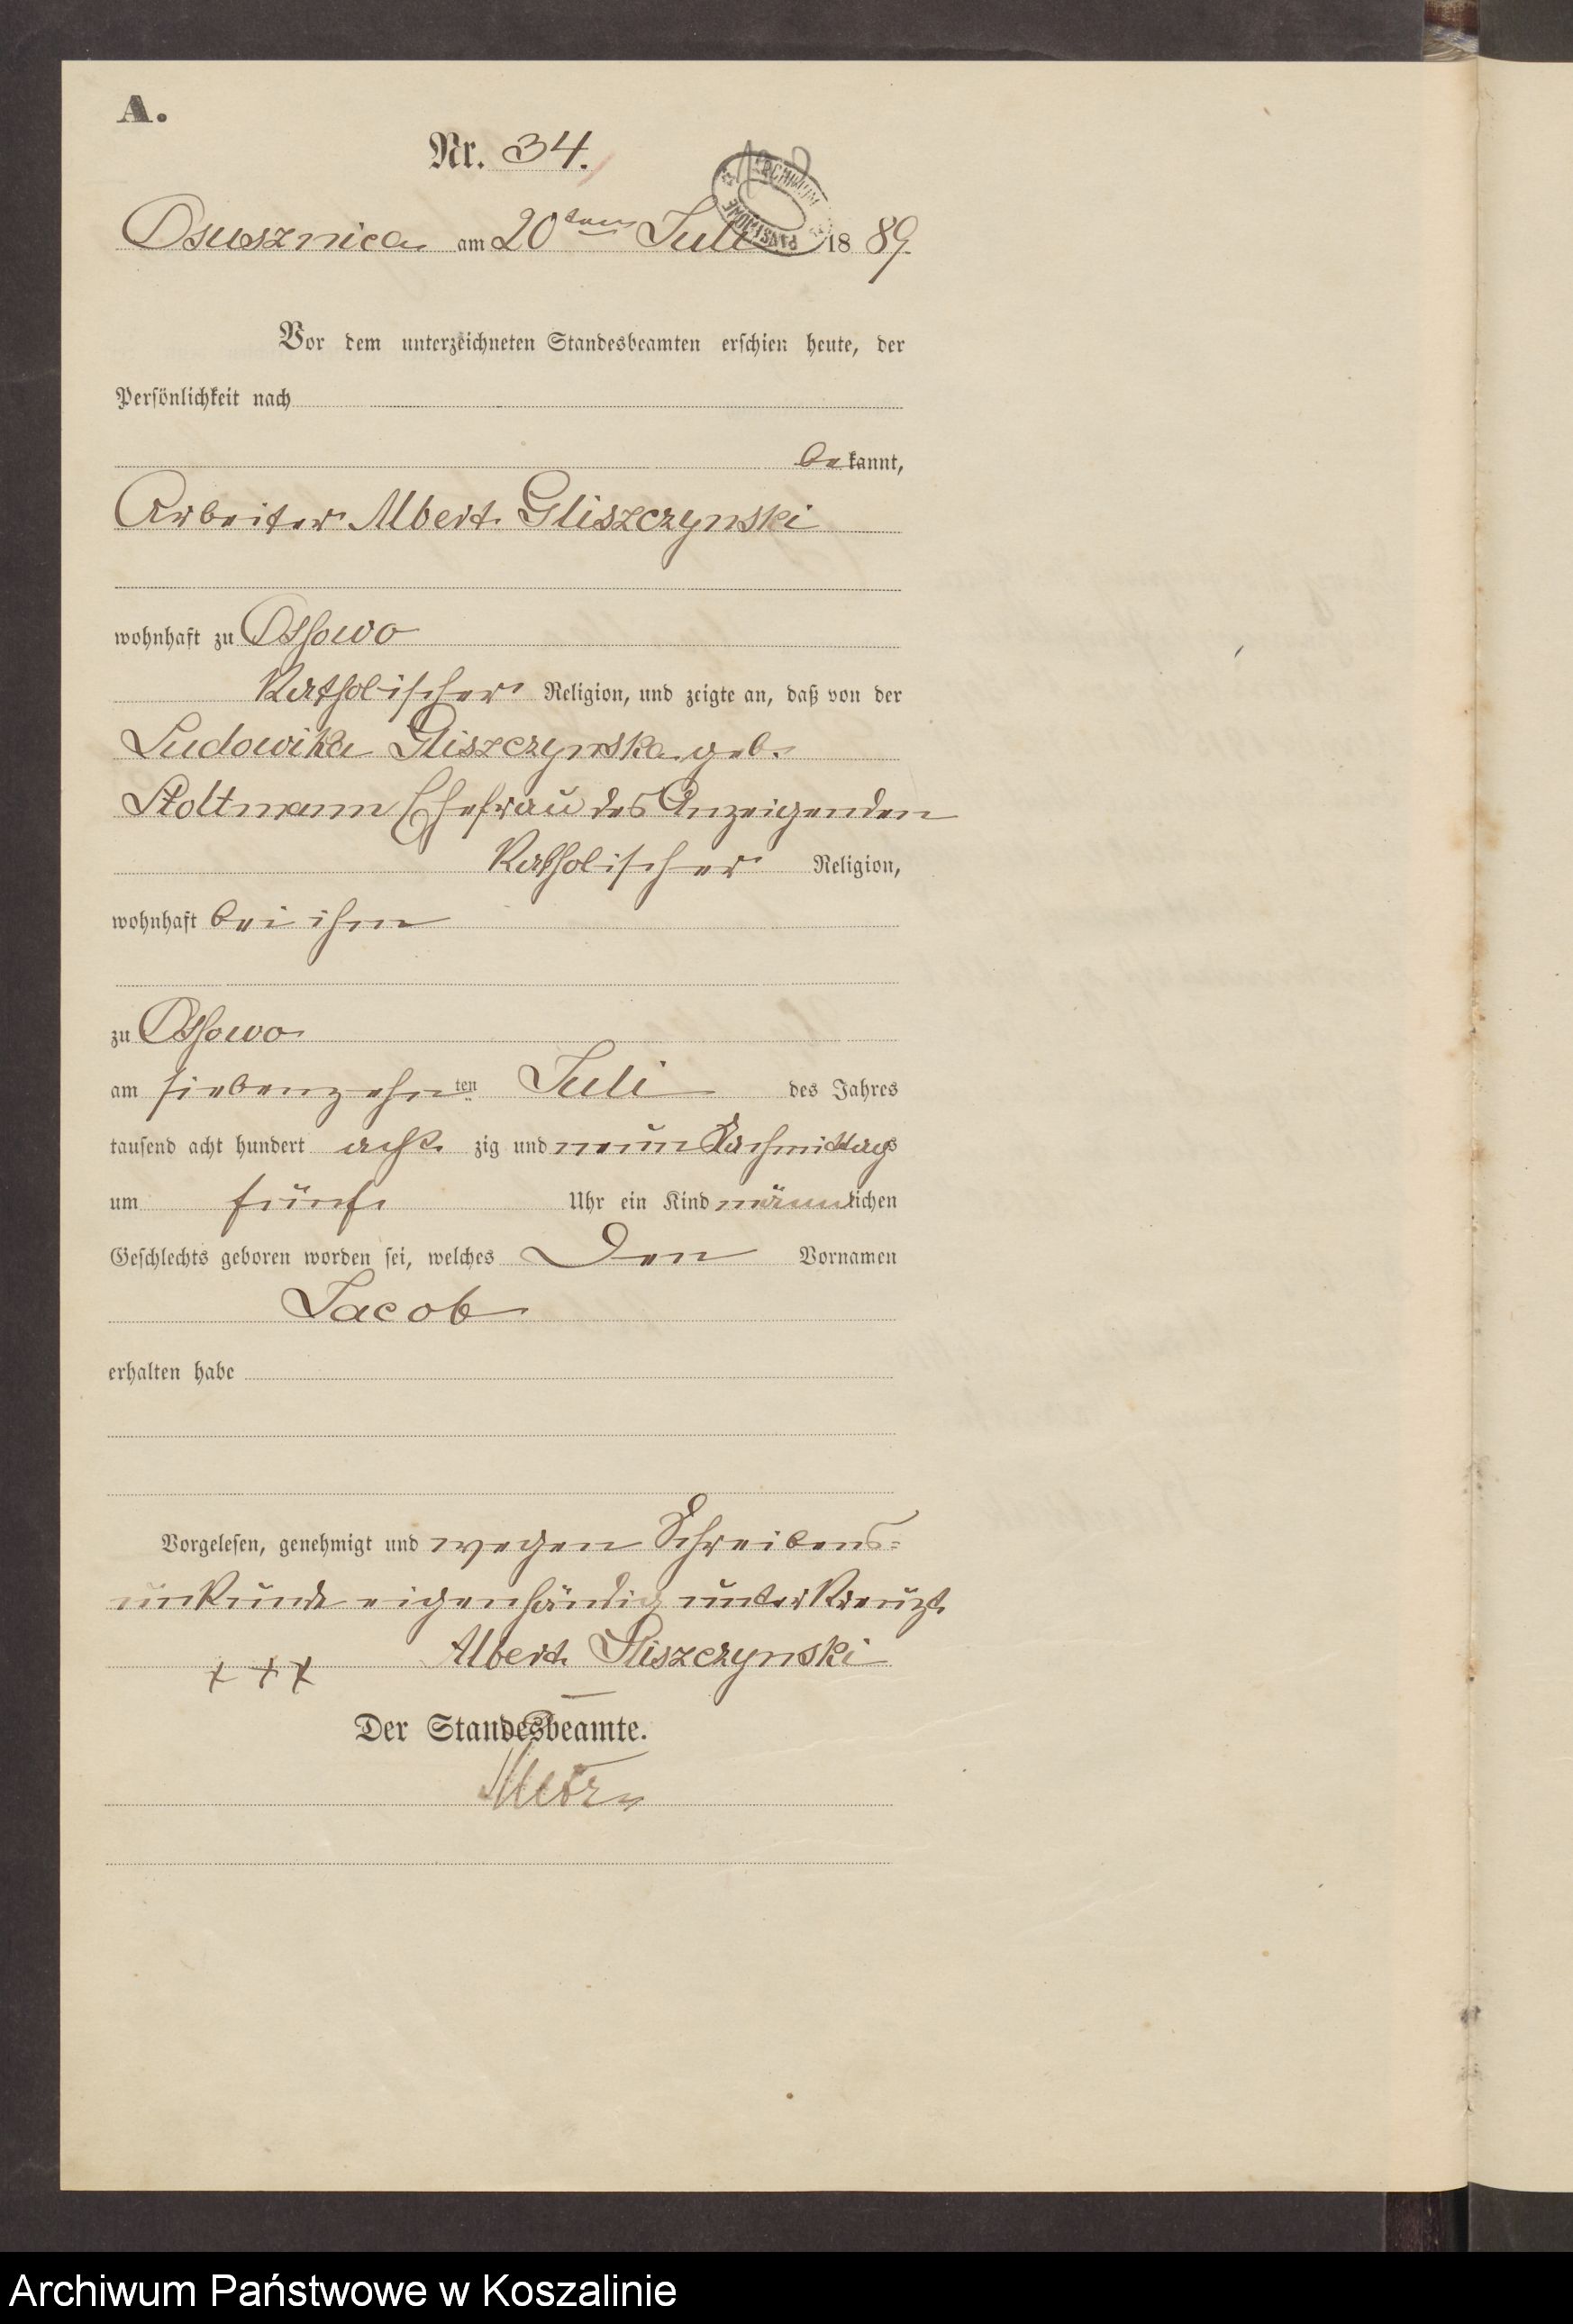 A.
Nr. 34.
ARCHIWUM PAŃSTWOWE
Osusznica am 20ten Juli 1889.
Vor dem unterzeichneten Standesbeamten erschien heute, der
Persönlichkeit nach
bekannt,
Arbeiter Albert Gliszczynski
wohnhaft zu Ossowo
Katholischer Religion, und zeigte an, daß von der
Ludowika Gliszczynska geb.
Stoltmann Ehefrau des Anzeigenden
Katholischer Religion,
wohnhaft bei ihm
zu Ossowo
am siebenzehnten Juli des Jahres
tausend acht hundert acht zig und neun Nachmittags
um fünf Uhr ein Kind männlichen
Geschlechts geboren worden sei, welches den Vornamen
Jacob
erhalten habe
Vorgelesen, genehmigt und wegen Schreibens=
unkunde eigenhändig unterkreuzt
+++ Albert Gliszczynski
Der Standesbeamte.
Archiwum Państwowe w Koszalinie